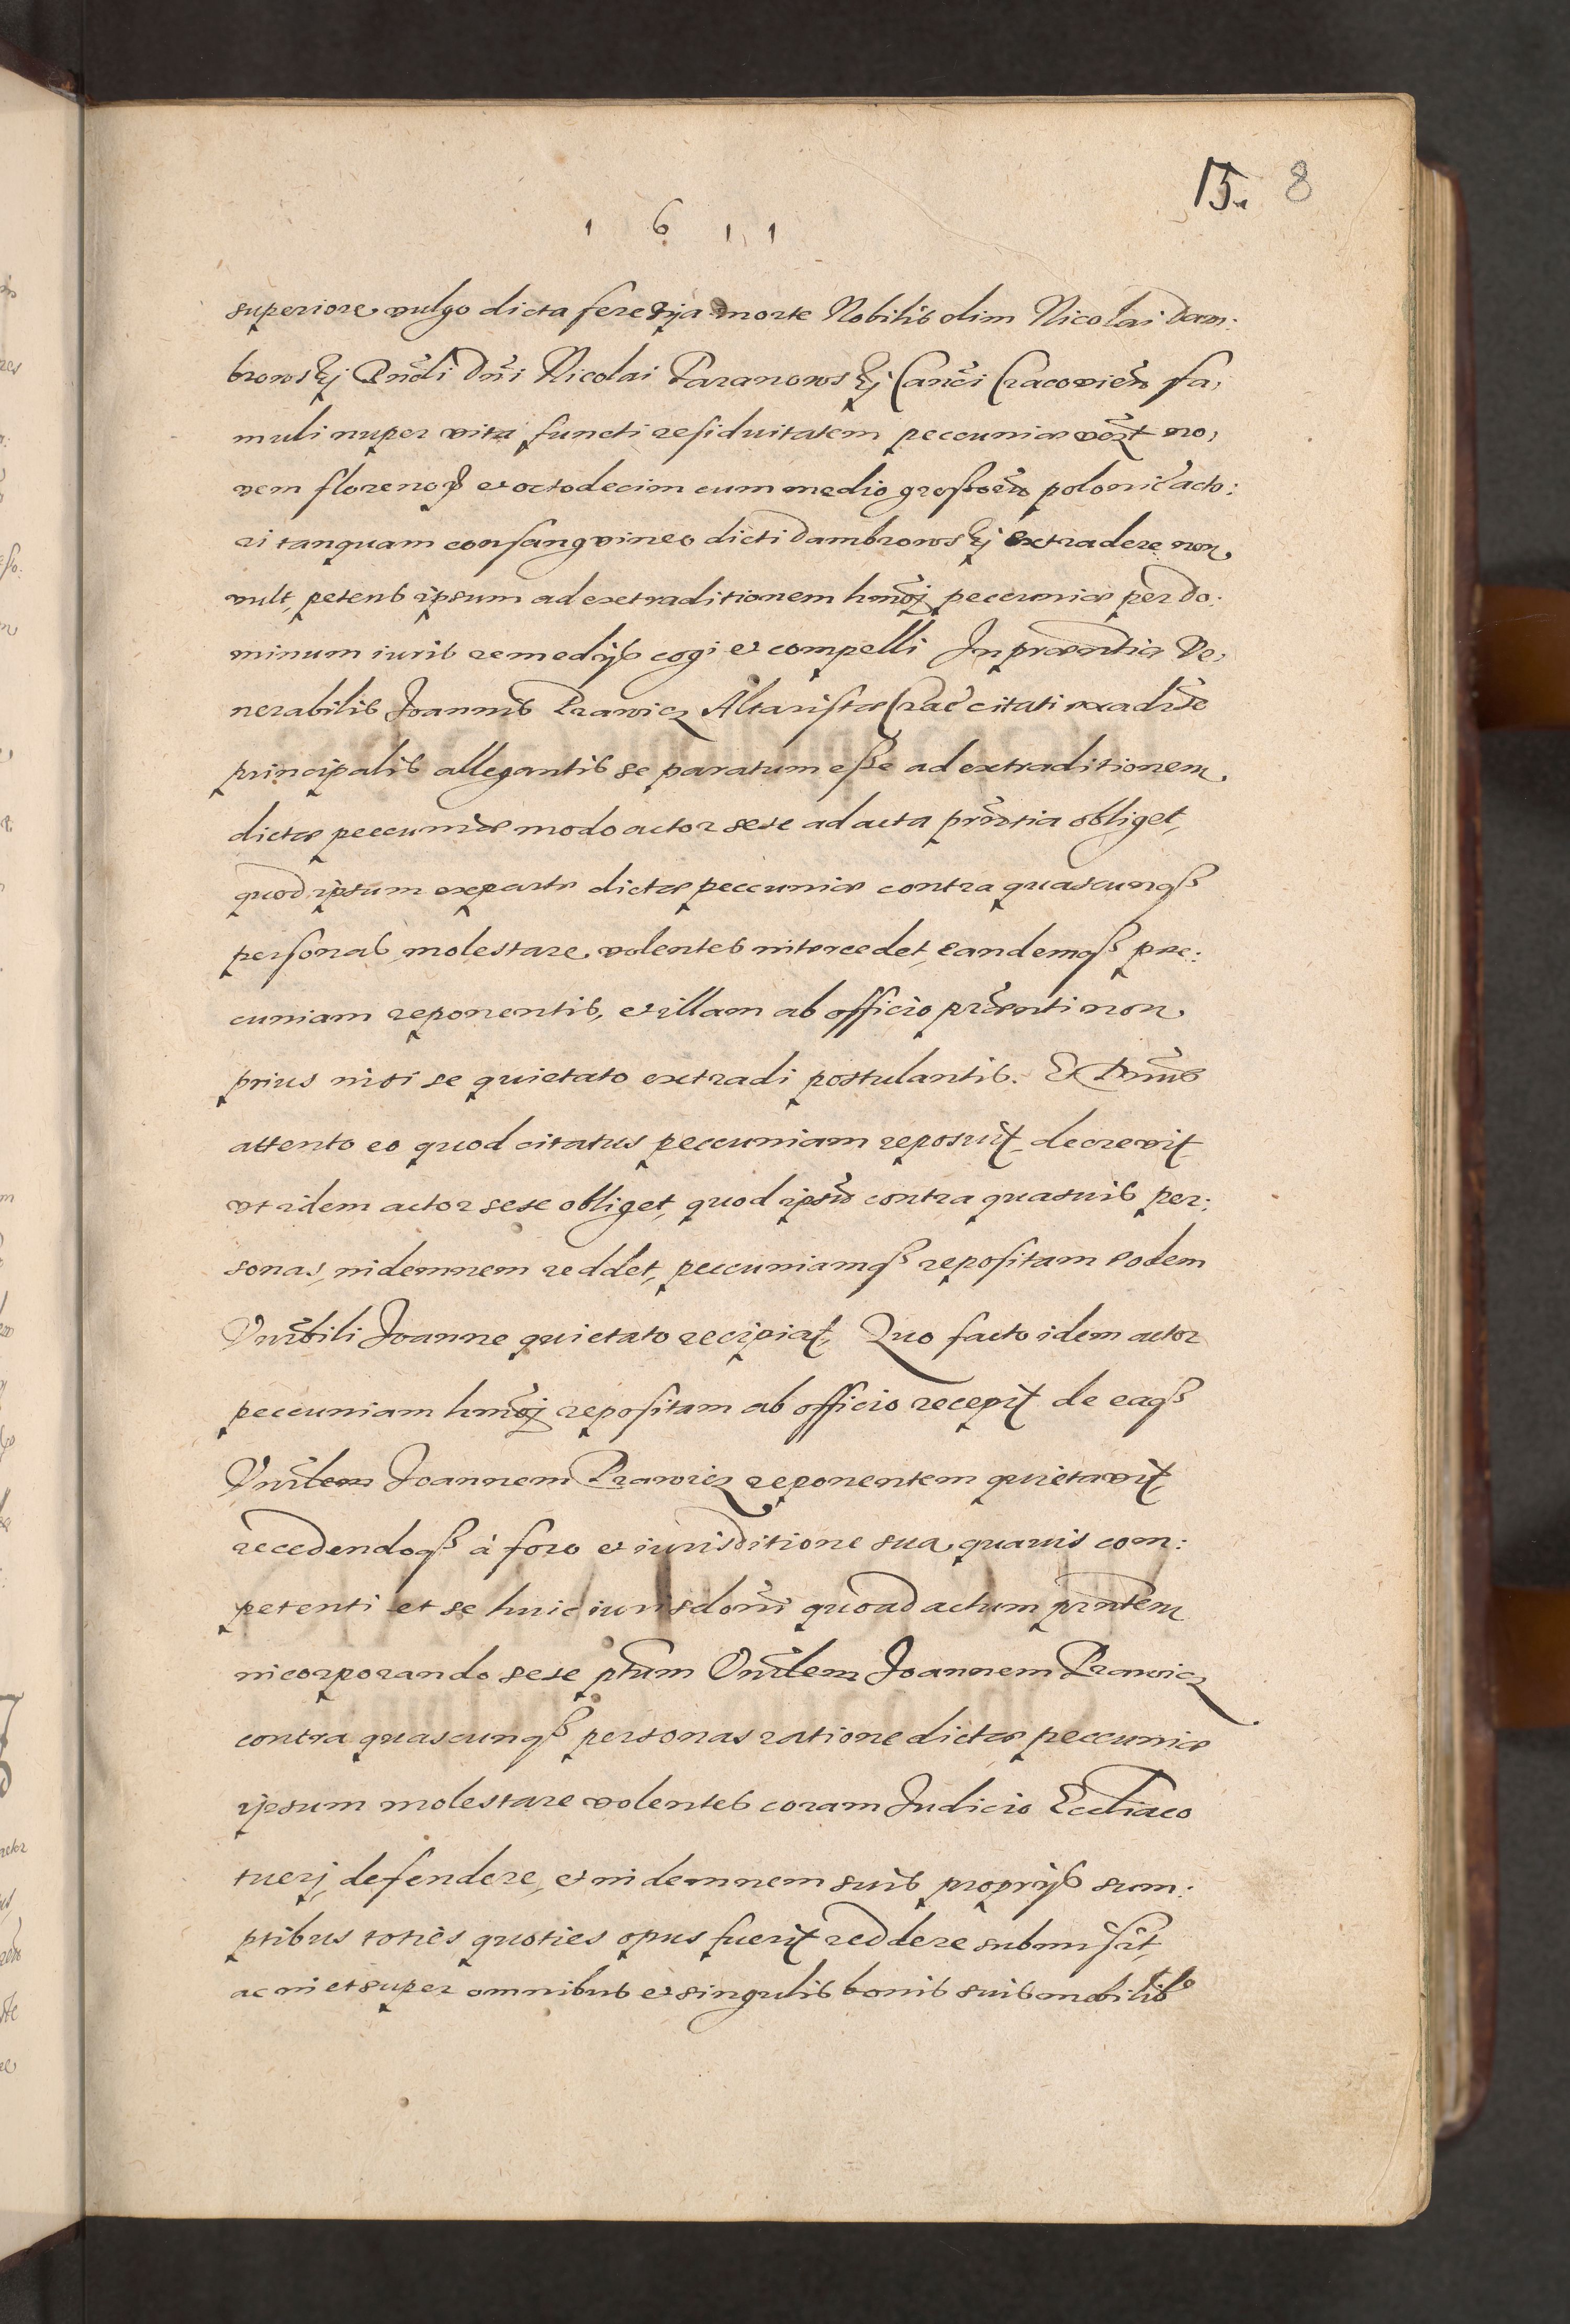 15. 8
1 6 1 1
superiore vulgo dicta ferezya morte Nobilis olim Nicolai Dam:
browskj Rndi Dni Nicolai Baranowskj Canci Cracovien fa,
muli nuper vita functi residuitatem peccuniæ no,
vem florenor et octodecim cum medio grossorum polonic acto:
ri tanquam consangvineo dicti Dambrowskj extradere non
vult, petens ipsum ad extraditionem hmoj peccuniæ per Do:
minum iuris remedijs cogi et compelli In præsentia Ve,
nerabilis Joannis Prawicz Altaristæ Crac citati ex adverso
principalis allegantis se paratum esse ad extraditionem
dictæ peccuniæ modo actor sese ad acta prsentia obliget,
quod ipsum ex parte dictæ peccuniæ contra quascunqs
personas molestare volentes intercedet, eandemqs pec:
cuniam reponentis, et illam ab officio præsenti non
prius nisi se quietato extradi postulantis. Et Dnus
attento eo quod citatus peccuniam reposuit, decrevit
vt idem actor sese obliget, quod ipsum contra quasuis per:
sonas, indemnem reddet, peccuniamqs repositam eodem
Vnrbili Joanne quietato recipiat, Quo facto idem actor
peccuniam hmoj repositam ab officio recepit de eaqs
Vnrlem Joannem Prawicz reponentem quietavit,
recedendoqs à foro et iurisditione sua quauis com:
petenti et se huic iurisdoni quoad actum prntem
incorporando sese ptum Vnrlem Joannem Prawicz
contra quascunqs personas ratione dictæ peccuniæ
ipsum molestare volentes coram Judicio Eccliaco
tuerj, defendere, et indemnem suis proprijs sum:
ptibus toties quoties opus fuerit reddere submisit,
ac in et super omnibus et singulis bonis suis mobilib